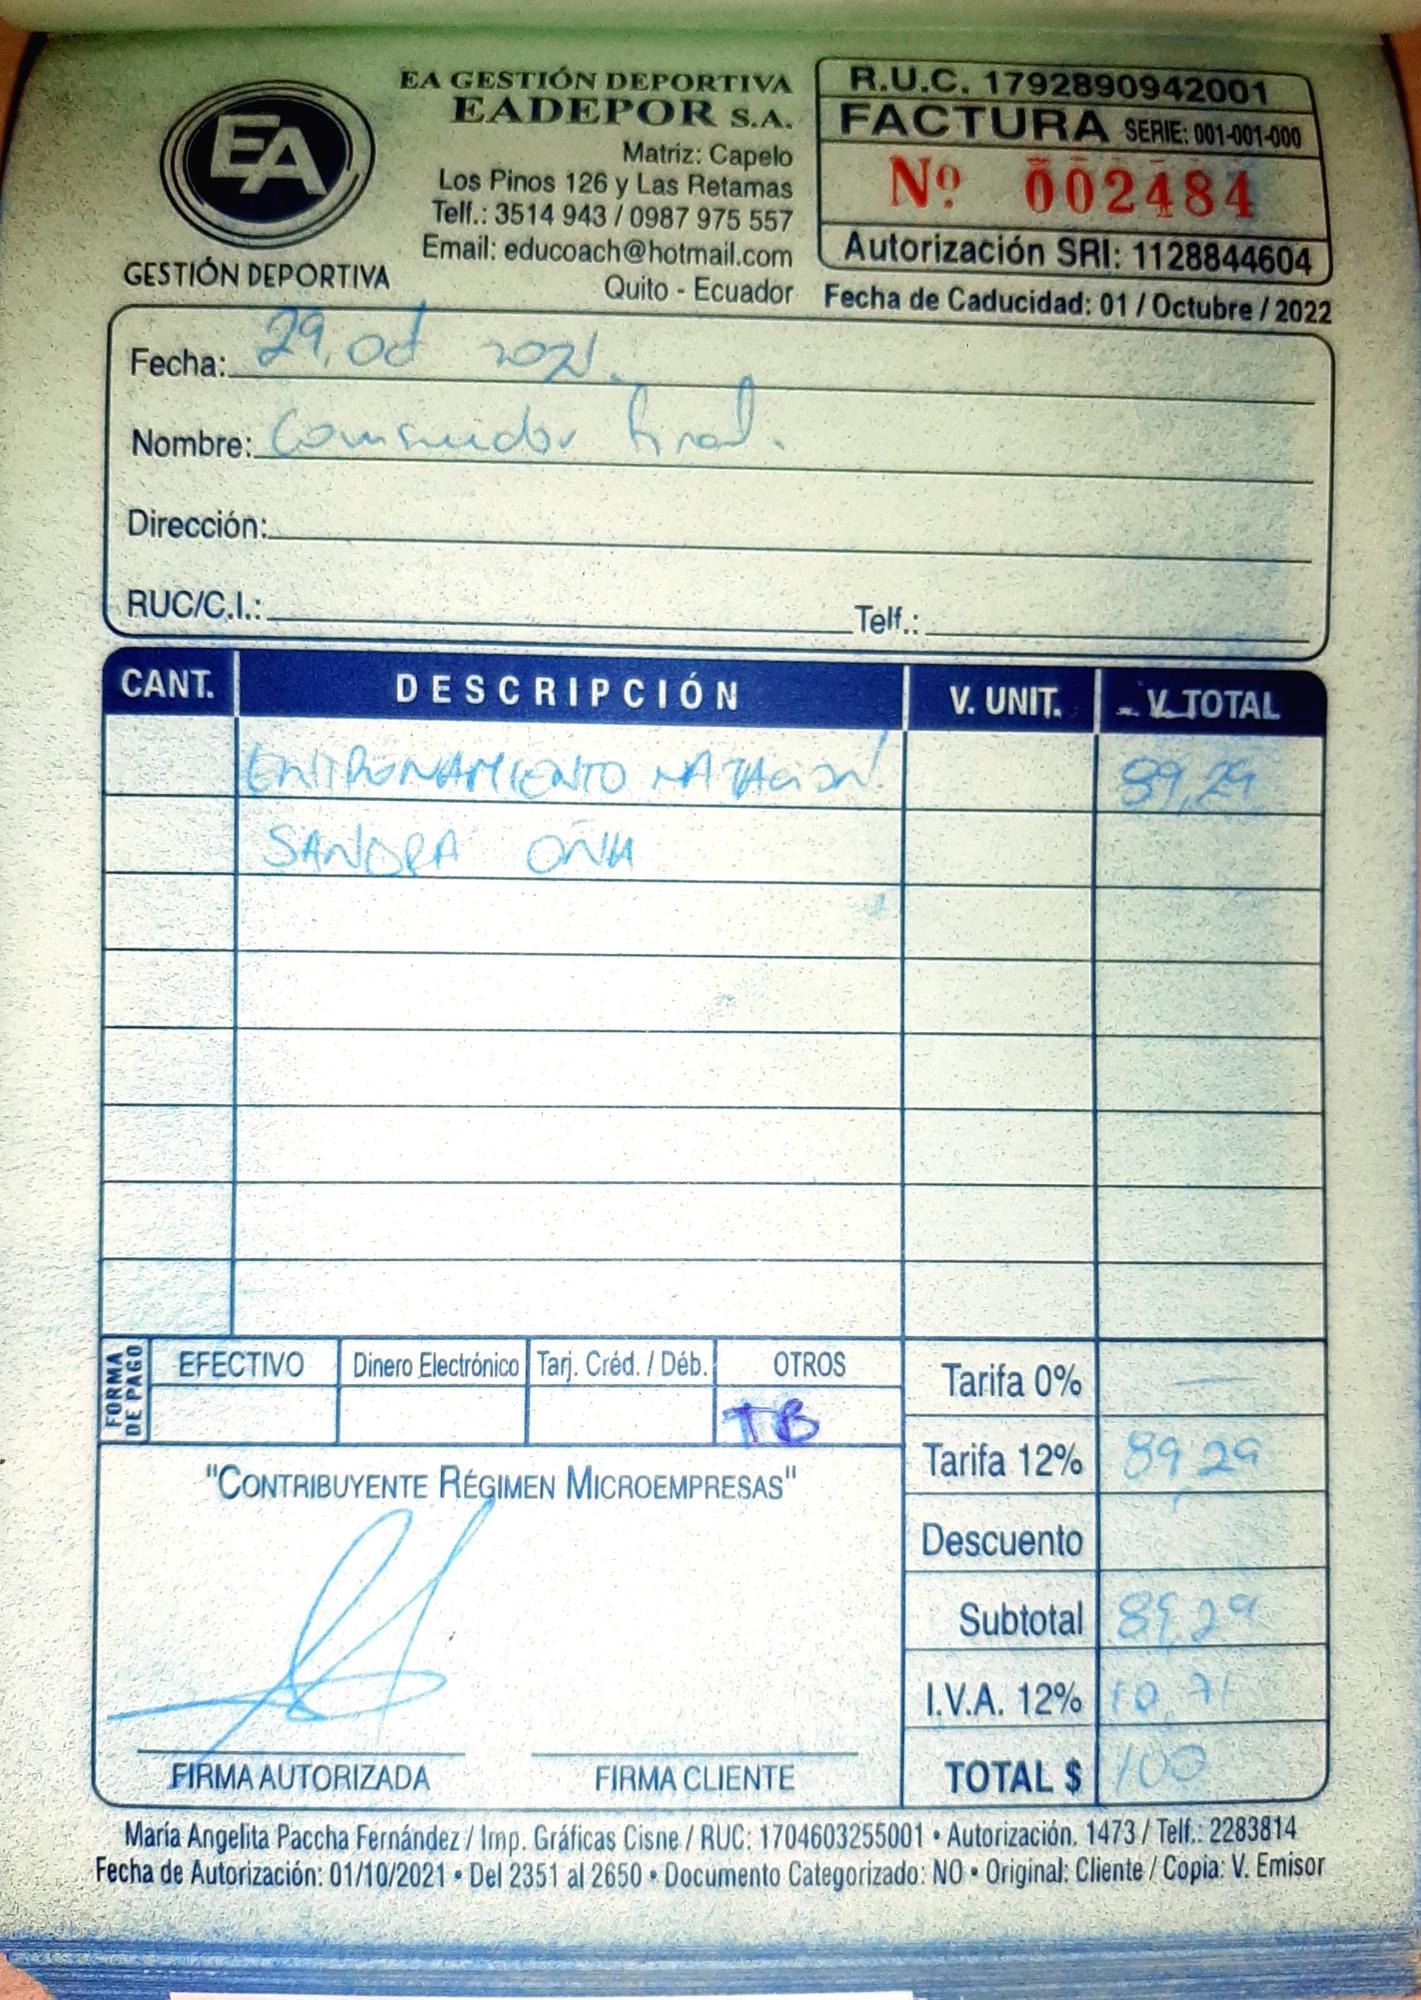 EA
GESTIÓN DEPORTIVA
EA GESTIÓN DEPORTIVA
EADEPOR S.A.
Matriz: Capelo
Los Pinos 126 y Las Retamas
Telf.: 3514 943 / 0987 975 557
Email: educoach@hotmail.com
Quito - Ecuador
R.U.C. 1792890942001
FACTURA SERIE: 001-001-000
Nº 002484
Autorización SRI: 1128844604
Fecha de Caducidad: 01 / Octubre / 2022
Fecha: 29, Oct 2021.
Nombre: Consumidor final.
Dirección:
RUC/C.I.: Telf.:
CANT. DESCRIPCIÓN V. UNIT. V. TOTAL
ENTRENAMIENTO NATACION! 89,29
SANDRA OÑA
FORMA DE PAGO
EFECTIVO Dinero Electrónico Tarj. Créd. / Déb. OTROS
TB
Tarifa 0% —
Tarifa 12% 89,29
Descuento
Subtotal 89,29
I.V.A. 12% 10,71
TOTAL $ 100
"CONTRIBUYENTE RÉGIMEN MICROEMPRESAS"
FIRMA AUTORIZADA FIRMA CLIENTE
María Angelita Paccha Fernández / Imp. Gráficas Cisne / RUC: 1704603255001 • Autorización. 1473 / Telf.: 2283814
Fecha de Autorización: 01/10/2021 • Del 2351 al 2650 • Documento Categorizado: NO • Original: Cliente / Copia: V. Emisor